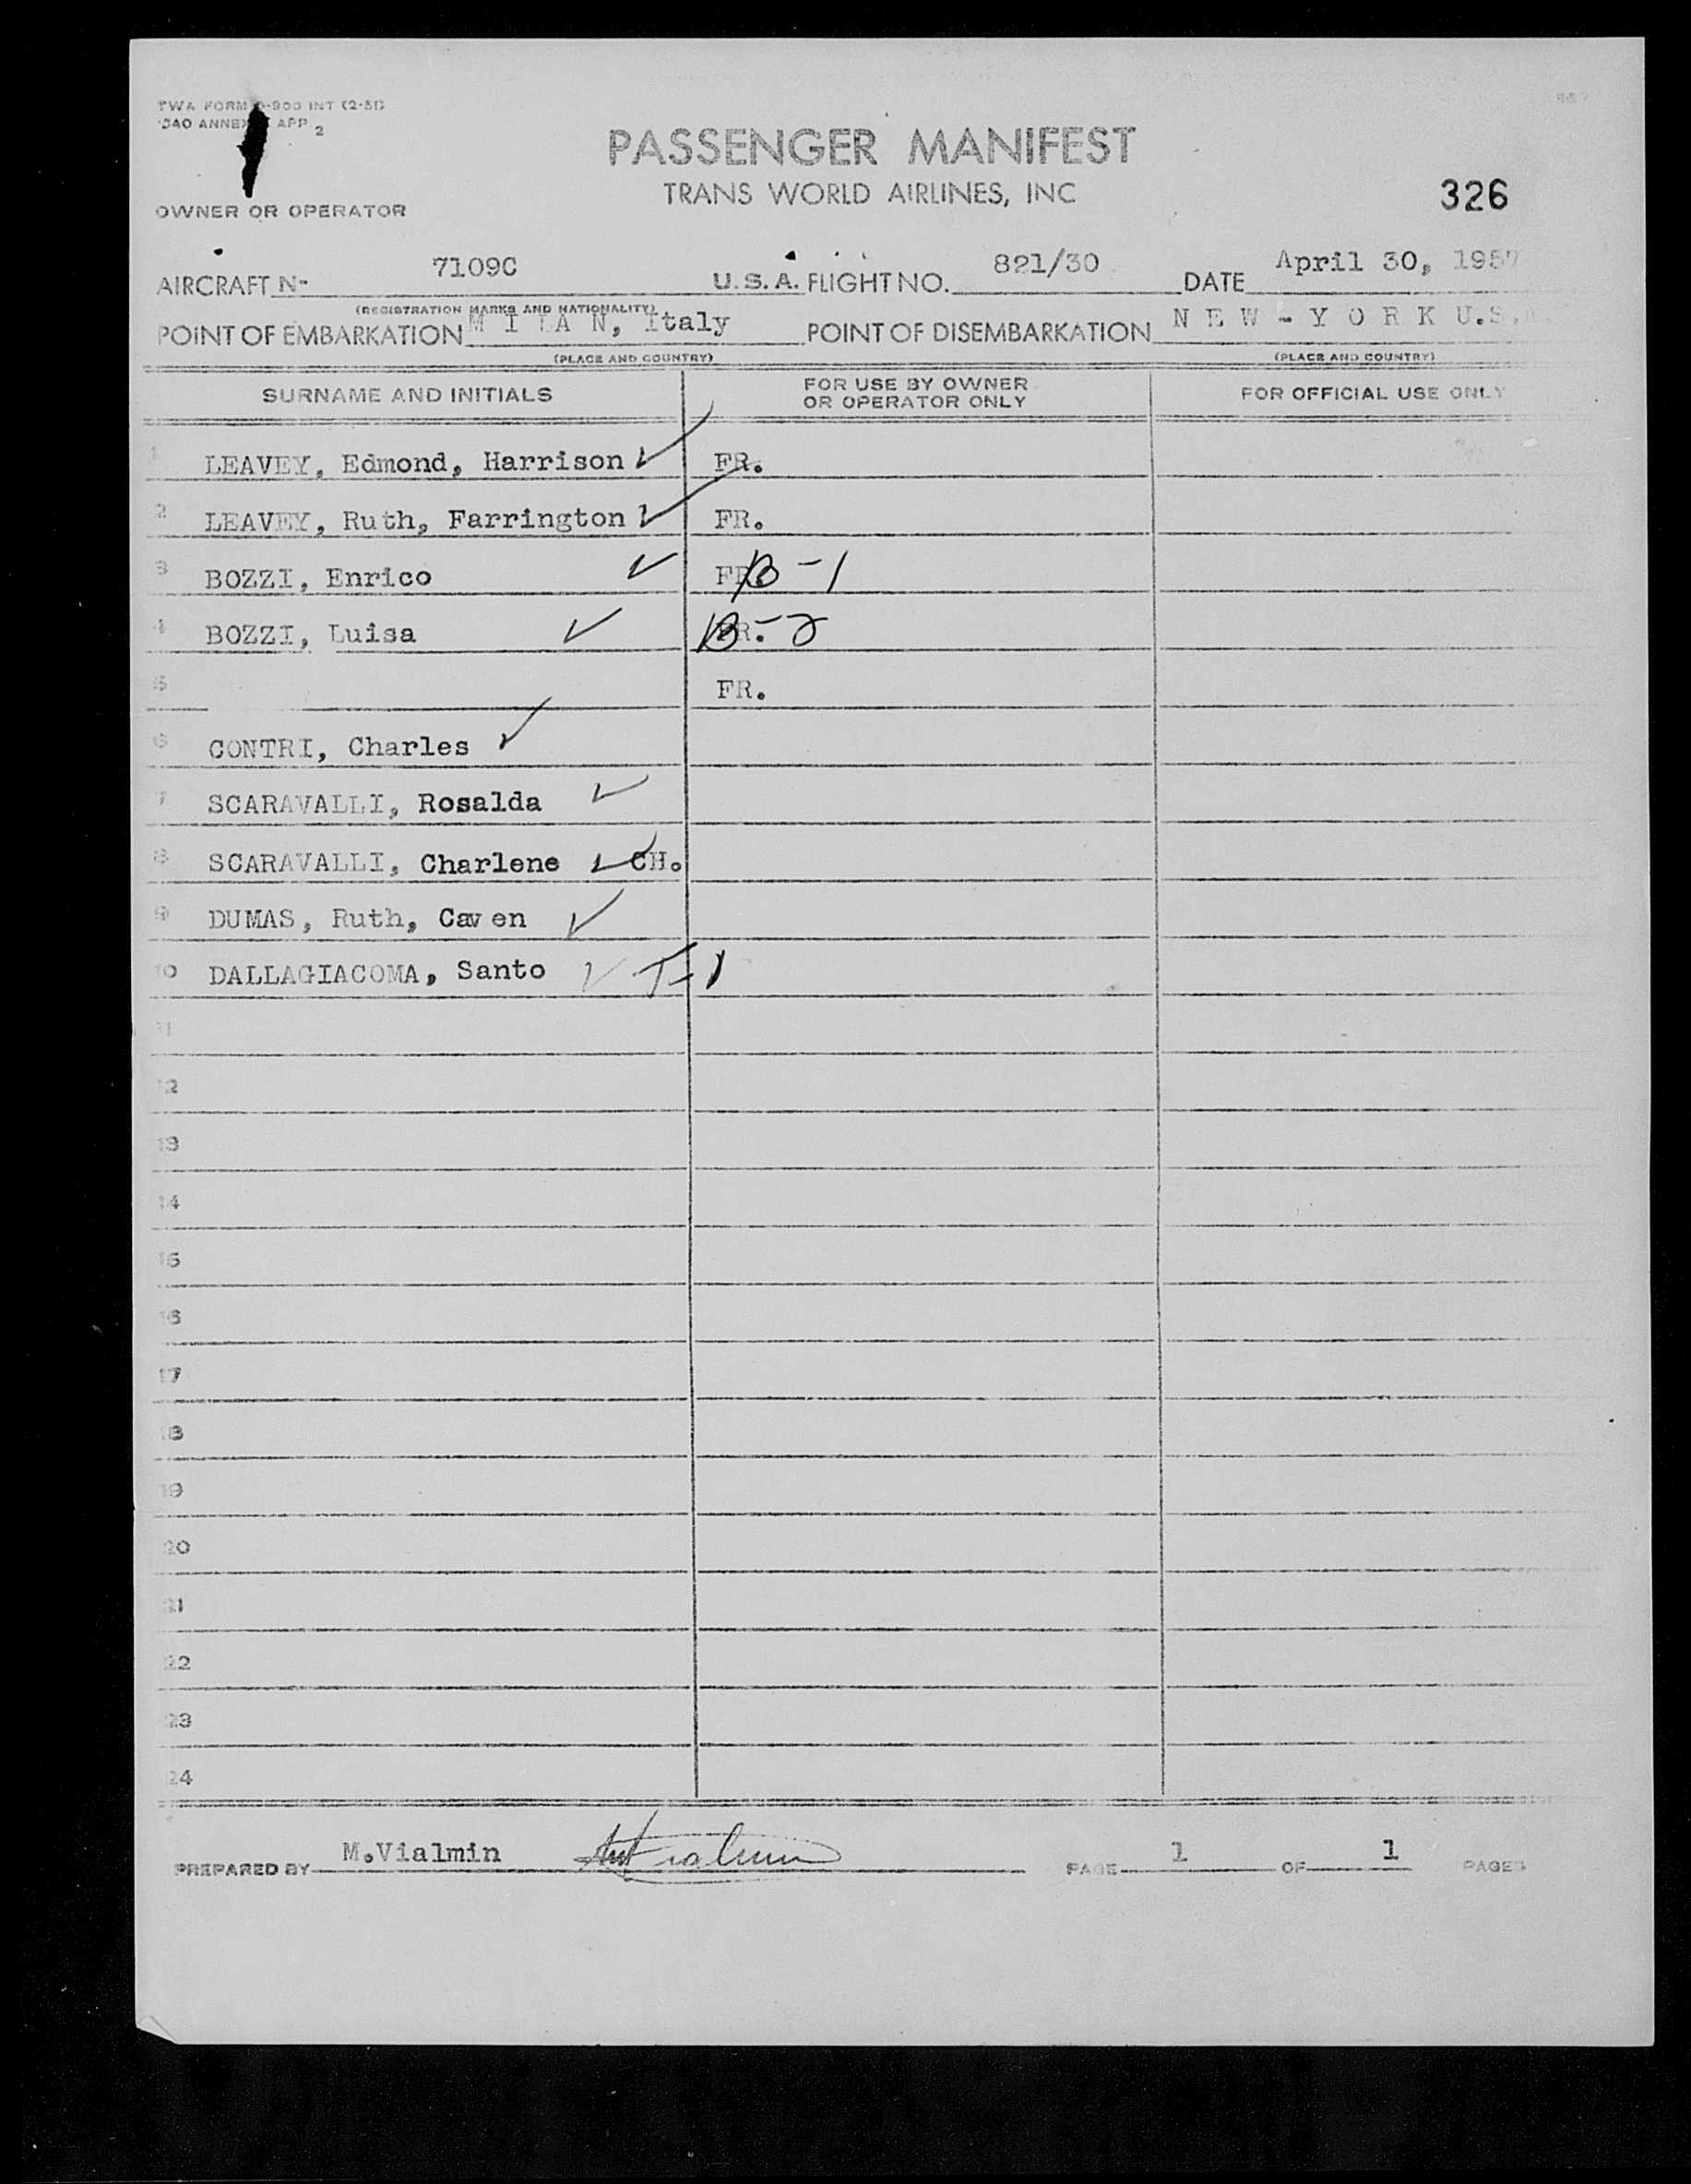 TWA FORM -900 INT (2-51)
ICAO ANNEX APP 2
PASSENGER MANIFEST
TRANS WORLD AIRLINES, INC
326
OWNER OR OPERATOR
AIRCRAFT N- 7109C U.S.A. FLIGHT NO. 821/30 DATE April 30, 1957
(REGISTRATION MARKS AND NATIONALITY)
POINT OF EMBARKATION M I L A N, Italy POINT OF DISEMBARKATION N E W - Y O R K U.S.
(PLACE AND COUNTRY) (PLACE AND COUNTRY)
SURNAME AND INITIALS FOR USE BY OWNER OR OPERATOR ONLY FOR OFFICIAL USE ONLY
1 LEAVEY, Edmond, Harrison ✓ FR.
2 LEAVEY, Ruth, Farrington ✓ FR.
3 BOZZI, Enrico ✓ FR. B-1
4 BOZZI, Luisa ✓ FR. B-2
5 FR.
6 CONTRI, Charles ✓
7 SCARAVALLI, Rosalda ✓
8 SCARAVALLI, Charlene ✓ CH.
9 DUMAS, Ruth, Caven ✓
10 DALLAGIACOMA, Santo ✓ T-1
11
12
13
14
15
16
17
18
19
20
21
22
23
24
PREPARED BY M.Vialmin PAGE 1 OF 1 PAGES